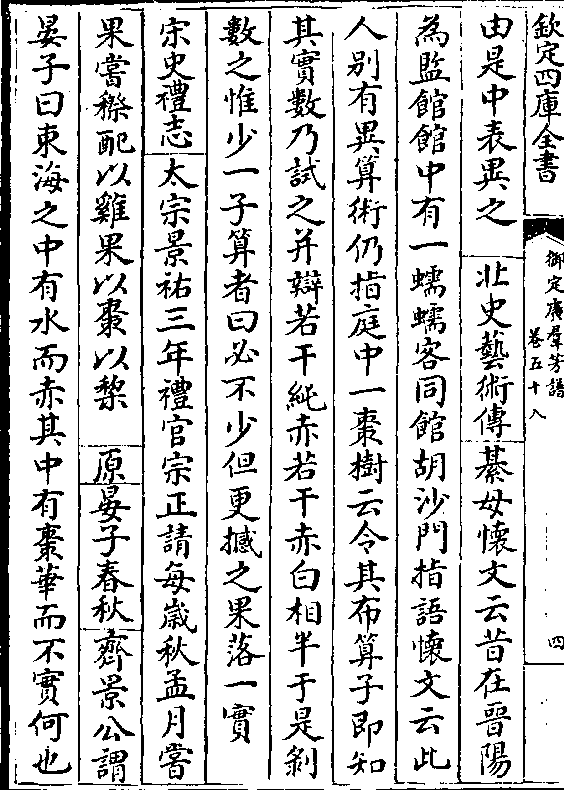 欽定四庫全書
御定廣羣芳譜
卷五十八
四
由是中表異之　北史藝術傳綦母懷文云昔在晉陽
為監館館中有一蠕蠕客同館胡沙門指語懷文云此
人别有異算術仍指庭中一棗樹云令其布算子即知
其實數乃試之并辯若干純赤若干赤白相半于是剝
數之惟少一子算者曰必不少但更撼之果落一實
宋史禮志太宗景祐三年禮官宗正請每歲秋孟月嘗
果嘗穄配以雞果以棗以棃　原晏子春秋齊景公謂
晏子曰東海之中有水而赤其中有棗華而不實何也